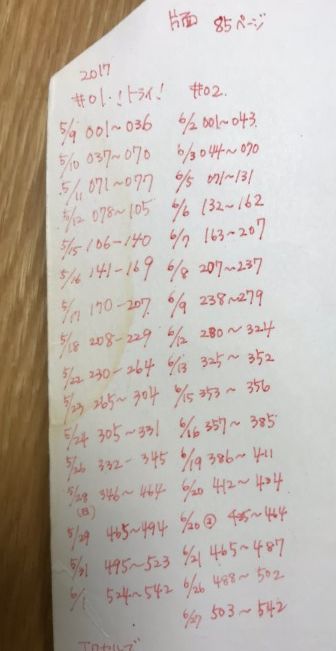 片面 85ページ
2017
#01.!トライ!
5/9 001~036
5/10 037~070
5/11 071~077
5/12 078~105
5/15 106-140
5/16 141-169
5/17 170-207
5/18 208-229
5/22 230-264
5/23 265~304
5/24 305~331
5/26 332-345
5/28 346~464
(日)
5/29 465~494
5/31 495~523
6/1 524~542
#02.
6/2 001~043
6/3 044~070
6/5 071~131
6/6 132~162
6/7 163~207
6/8 207~237
6/9 238~279
6/12 280~324
6/13 325~352
6/15 353~356
6/16 357~385
6/19 386~411
6/20 412~434
6/20② 435~464
6/21 465~487
6/26 488~502
6/27 503~542